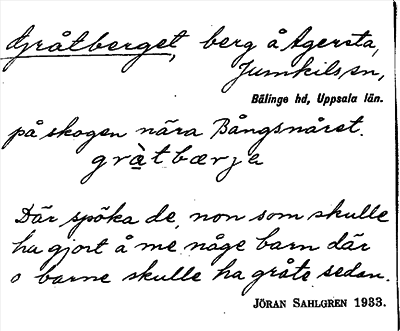 Gråtberget, berg å Agersta,
Jumkils sn,
Bälinge hd, Uppsala län.
på skogen nära Bångsnåret.
grà̤tbærja
Där spöka de, non som skulle
ha gjort å me någe barn där
o barne skulle ha gråte sedan.
JÖRAN SAHLGREN 1933.